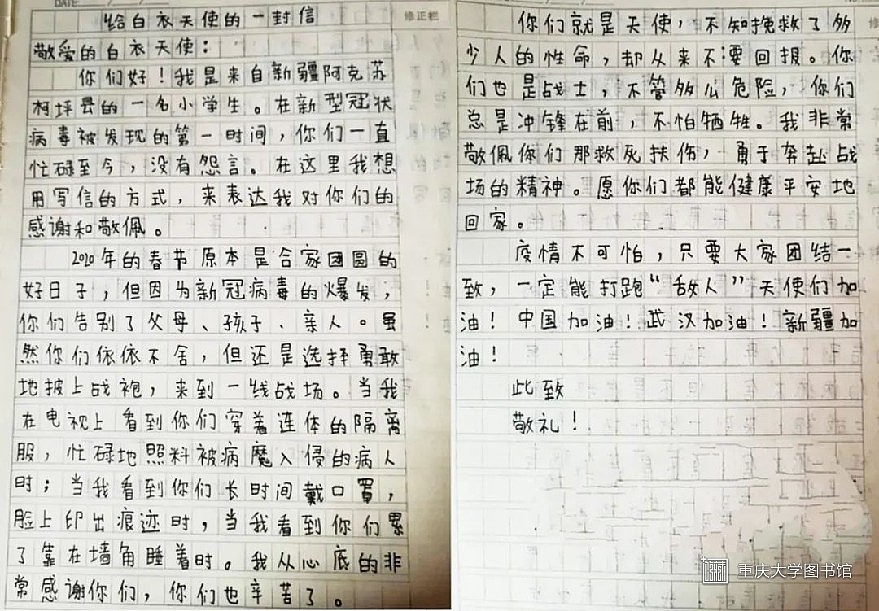 给白衣天使的一封信
敬爱的白衣天使：
你们好！我是来自新疆阿克苏
柯坪县的一名小学生。在新型冠状
病毒被发现的第一时间，你们一直
忙碌至今，没有怨言。在这里我想
用写信的方式，来表达我对你们的
感谢和敬佩。
2020年的春节原本是合家团圆的
好日子，但因为新冠病毒的爆发，
你们告别了父母、孩子、亲人。虽
然你们依依不舍，但还是选择勇敢
地披上战袍，来到一线战场。当我
在电视上看到你们穿着连体的隔离
服，忙碌地照料被病魔入侵的病人
时；当我看到你们长时间戴口罩，
脸上印出痕迹时，当我看到你们累
了靠在墙角睡着时。我从心底的非
常感谢你们，你们也辛苦了。
修正栏
你们就是天使，不知挽救了多
少人的性命，却从来不要回报。你
们也是战士，不管多么危险，你们
总是冲锋在前，不怕牺牲。我非常
敬佩你们那救死扶伤，勇于奔赴战
场的精神。愿你们都能健康平安地
回家。
疫情不可怕，只要大家团结一
致，一定能打跑“敌人”天使们加
油！中国加油！武汉加油！新疆加
油！
此致
敬礼！
重庆大学图书馆